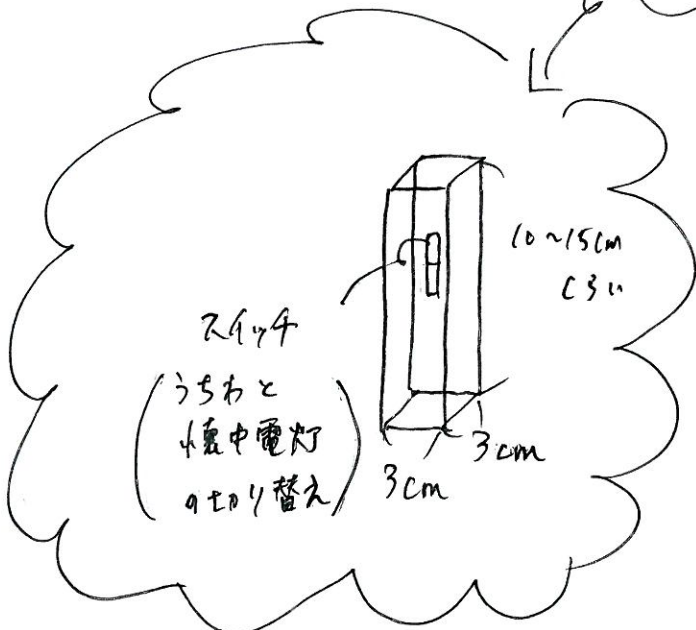 10~15cm
くらい
スイッチ
(うちわと
懐中電灯
の切り替え)
3cm
3cm